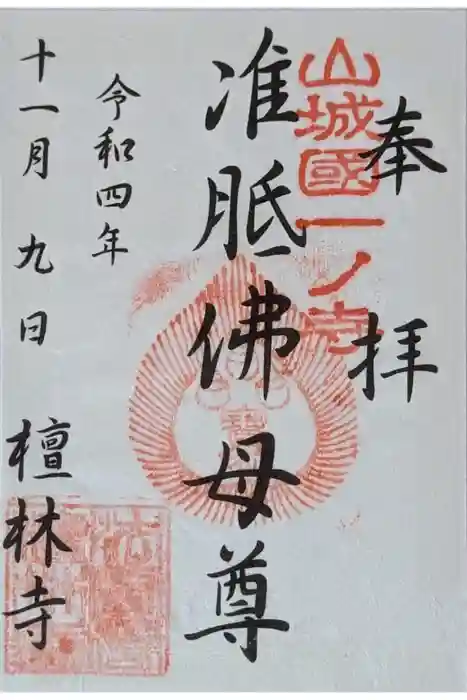 奉拝
山城國一ノ寺
准胝佛母尊
令和四年
十一月九日
檀林寺